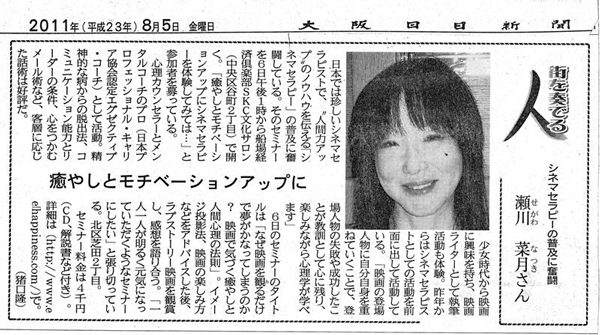 2011年(平成23年)8月5日 金曜日
大阪日日新聞
街を奏でる
人
シネマセラピーの普及に奮闘
瀬川 菜月さん
せがわ なつき
癒やしとモチベーションアップに
日本では珍しいシネマセ
ラピストで、“人間力アッ
プ”のノウハウを伝える「シ
ネマセラピー」の普及に奮
闘している。そのセミナー
を6日午後1時から船場経
済倶楽部SKC文化サロン
(中央区谷町2丁目)で開
く。「癒やしとモチベーシ
ョンアップにシネマセラピ
ーを体験してみては…」と
参加者を募っている。
心理カウンセラーとメン
タルコーチのプロ(日本プ
ロフェッショナル・キャリ
ア協会認定エグゼクティブ
・コーチ)として活動。精
神的な病からの脱出法、コ
ミュニケーション能力とリ
ーダーの条件、心をつかむ
メール術など、客層に応じ
た話術は好評だ。
少女時代から映画
に興味を持ち、映画
ライターとして執筆
活動も体験。昨年か
らはシネマセラピス
トとしての活動を前
面に出して活動して
いる。「映画の登場
人物に自分自身を重
ねていくことで、登
場人物の失敗や成功したこ
とが教訓として心に残り、
楽しみながら心理学が学べ
ます」
6日のセミナーのタイト
ルは「なぜ映画を観るだけ
で夢がかなってしまうのか
？ 映画で気づく癒やしと
人間心理の法則」。イメー
ジ投影法、映画の楽しみ方
などをアドバイスした後、
ラブストーリー映画を観賞
し、感想を語り合う。「一
人一人が明るく元気になっ
ていただくようなセミナー
にしたい」と張り切ってい
る。北区芝田2丁目。
セミナー料金は4千円
(CD、解説書など付き)。
詳細は(http://www.e
elhappiness.com/)へ。
(猪口隆)